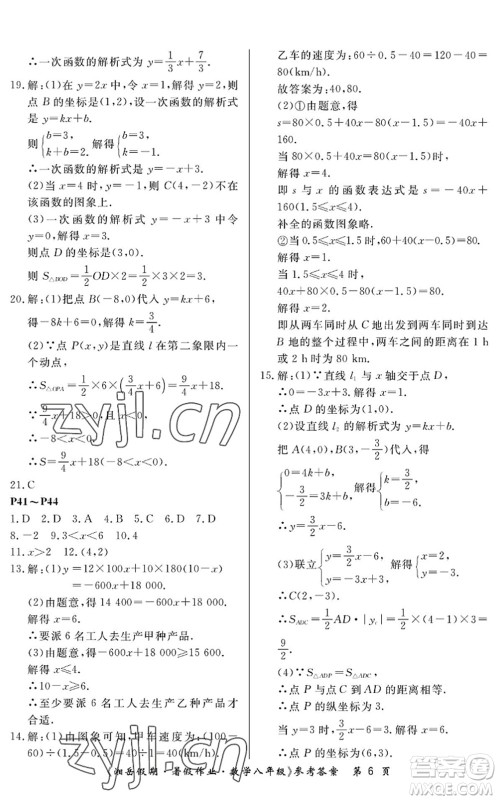 ∴一次函数的解析式为 y=1/3x+7/3.
19.解:(1)在 y=2x 中,令 x=1,得 y=2,则
点 B 的坐标是(1,2),设一次函数的解析式
是 y=kx+b.
则{b=3, k+b=2. 解得{b=3, k=-1.
∴一次函数的解析式为 y=-x+3.
(2)当 x=4 时,y=-1,则 C(4,-2)不在
该函数的图象上.
(3)一次函数的解析式 y=-x+3 中令
y=0,解得 x=3.
则点 D 的坐标是(3,0).
则 S△BOD=1/2OD×2=1/2×3×2=3.
20.解:(1)把点 B(-8,0)代入 y=kx+6,
得-8k+6=0,解得 k=3/4.
(2)∵点 P(x,y)是直线 l 在第二象限内一
个动点,
∴S△OPA=1/2×6×(3/4x+6)=9/4x+18.
∴-8<x<0.
∴S=9/4x+18(-8<x<0).
21.C
P41～P44
1.D 2.D 3.A 4.C 5.D 6.A 7.D
8.-2 9.3<x<6 10.4
11.x>2 12.(4,2)
13.解:(1)y=12×100x+10×180(10-x)
=-600x+18 000.
(2)由题意,得 14 400=-600x+18 000.
解得 x=6.
∴要派 6 名工人去生产甲种产品.
(3)由题意,得-600x+18 000≥15 600.
解得 x≤4.
∴10-x≥6.
∴至少要派 6 名工人去生产乙种产品才
合适.
14.解:(1)由图象可知,甲车的速度为:
60÷(1.5-0.5)=40(km/h),
乙车的速度为:60÷0.5-40=80
(km/h).
故答案为:40,80.
(2)①由题意,得
s=80×0.5+40(x-0.5)=40x+
160.
当 40x+80(x-1.5)=160 时,
解得 x=4.
即 s 与 x 的函数表达式是 s=40x+
160(1.5≤x≤4).
补全的函数图象略.
②当 0≤x≤1.5 时,
80×0.5+40(x-0.5)=80,
解得 x=1.5.
当 1.5≤x≤4 时,
40x+80-80(x-1.5)=80,
解得 x=3.
即从两车同时从 A 地出发到两车都到达
B 地的整个过程中,两车之间的距离在 1.5
h 或 3 h 时为 80 km.
15.解:(1)∵直线 l1 与 x 轴交于点 D,
∴0=-3x+3.解得 x=1.
∴点 D 的坐标为(1,0).
(2)设直线 l2 的解析式为 y=kx+b.
把 A(4,0),B(3,-3/2)代入,得
{0=4k+b, -3/2=3k+b. 解得{k=3/2, b=-6.
∴y=3/2x-6.
(3)联立{y=-3x+3, y=3/2x-6. 解得{x=2, y=-3.
∴C(2,-3).
∴S△ADC=1/2AD·|y|=1/2×(4-1)×3=
9/2.
(4)∵S△ADP=S△ADC,
∴点 P 与点 C 到 AD 的距离相等.
∴点 P 的纵坐标为 3.
当 y=3 时,3/2x-6=3.解得 x=6.
∴点 P 的坐标为(6,3).
《湘岳假期·暑假作业·数学八年级》参考答案 第 6 页
zyjl.cn